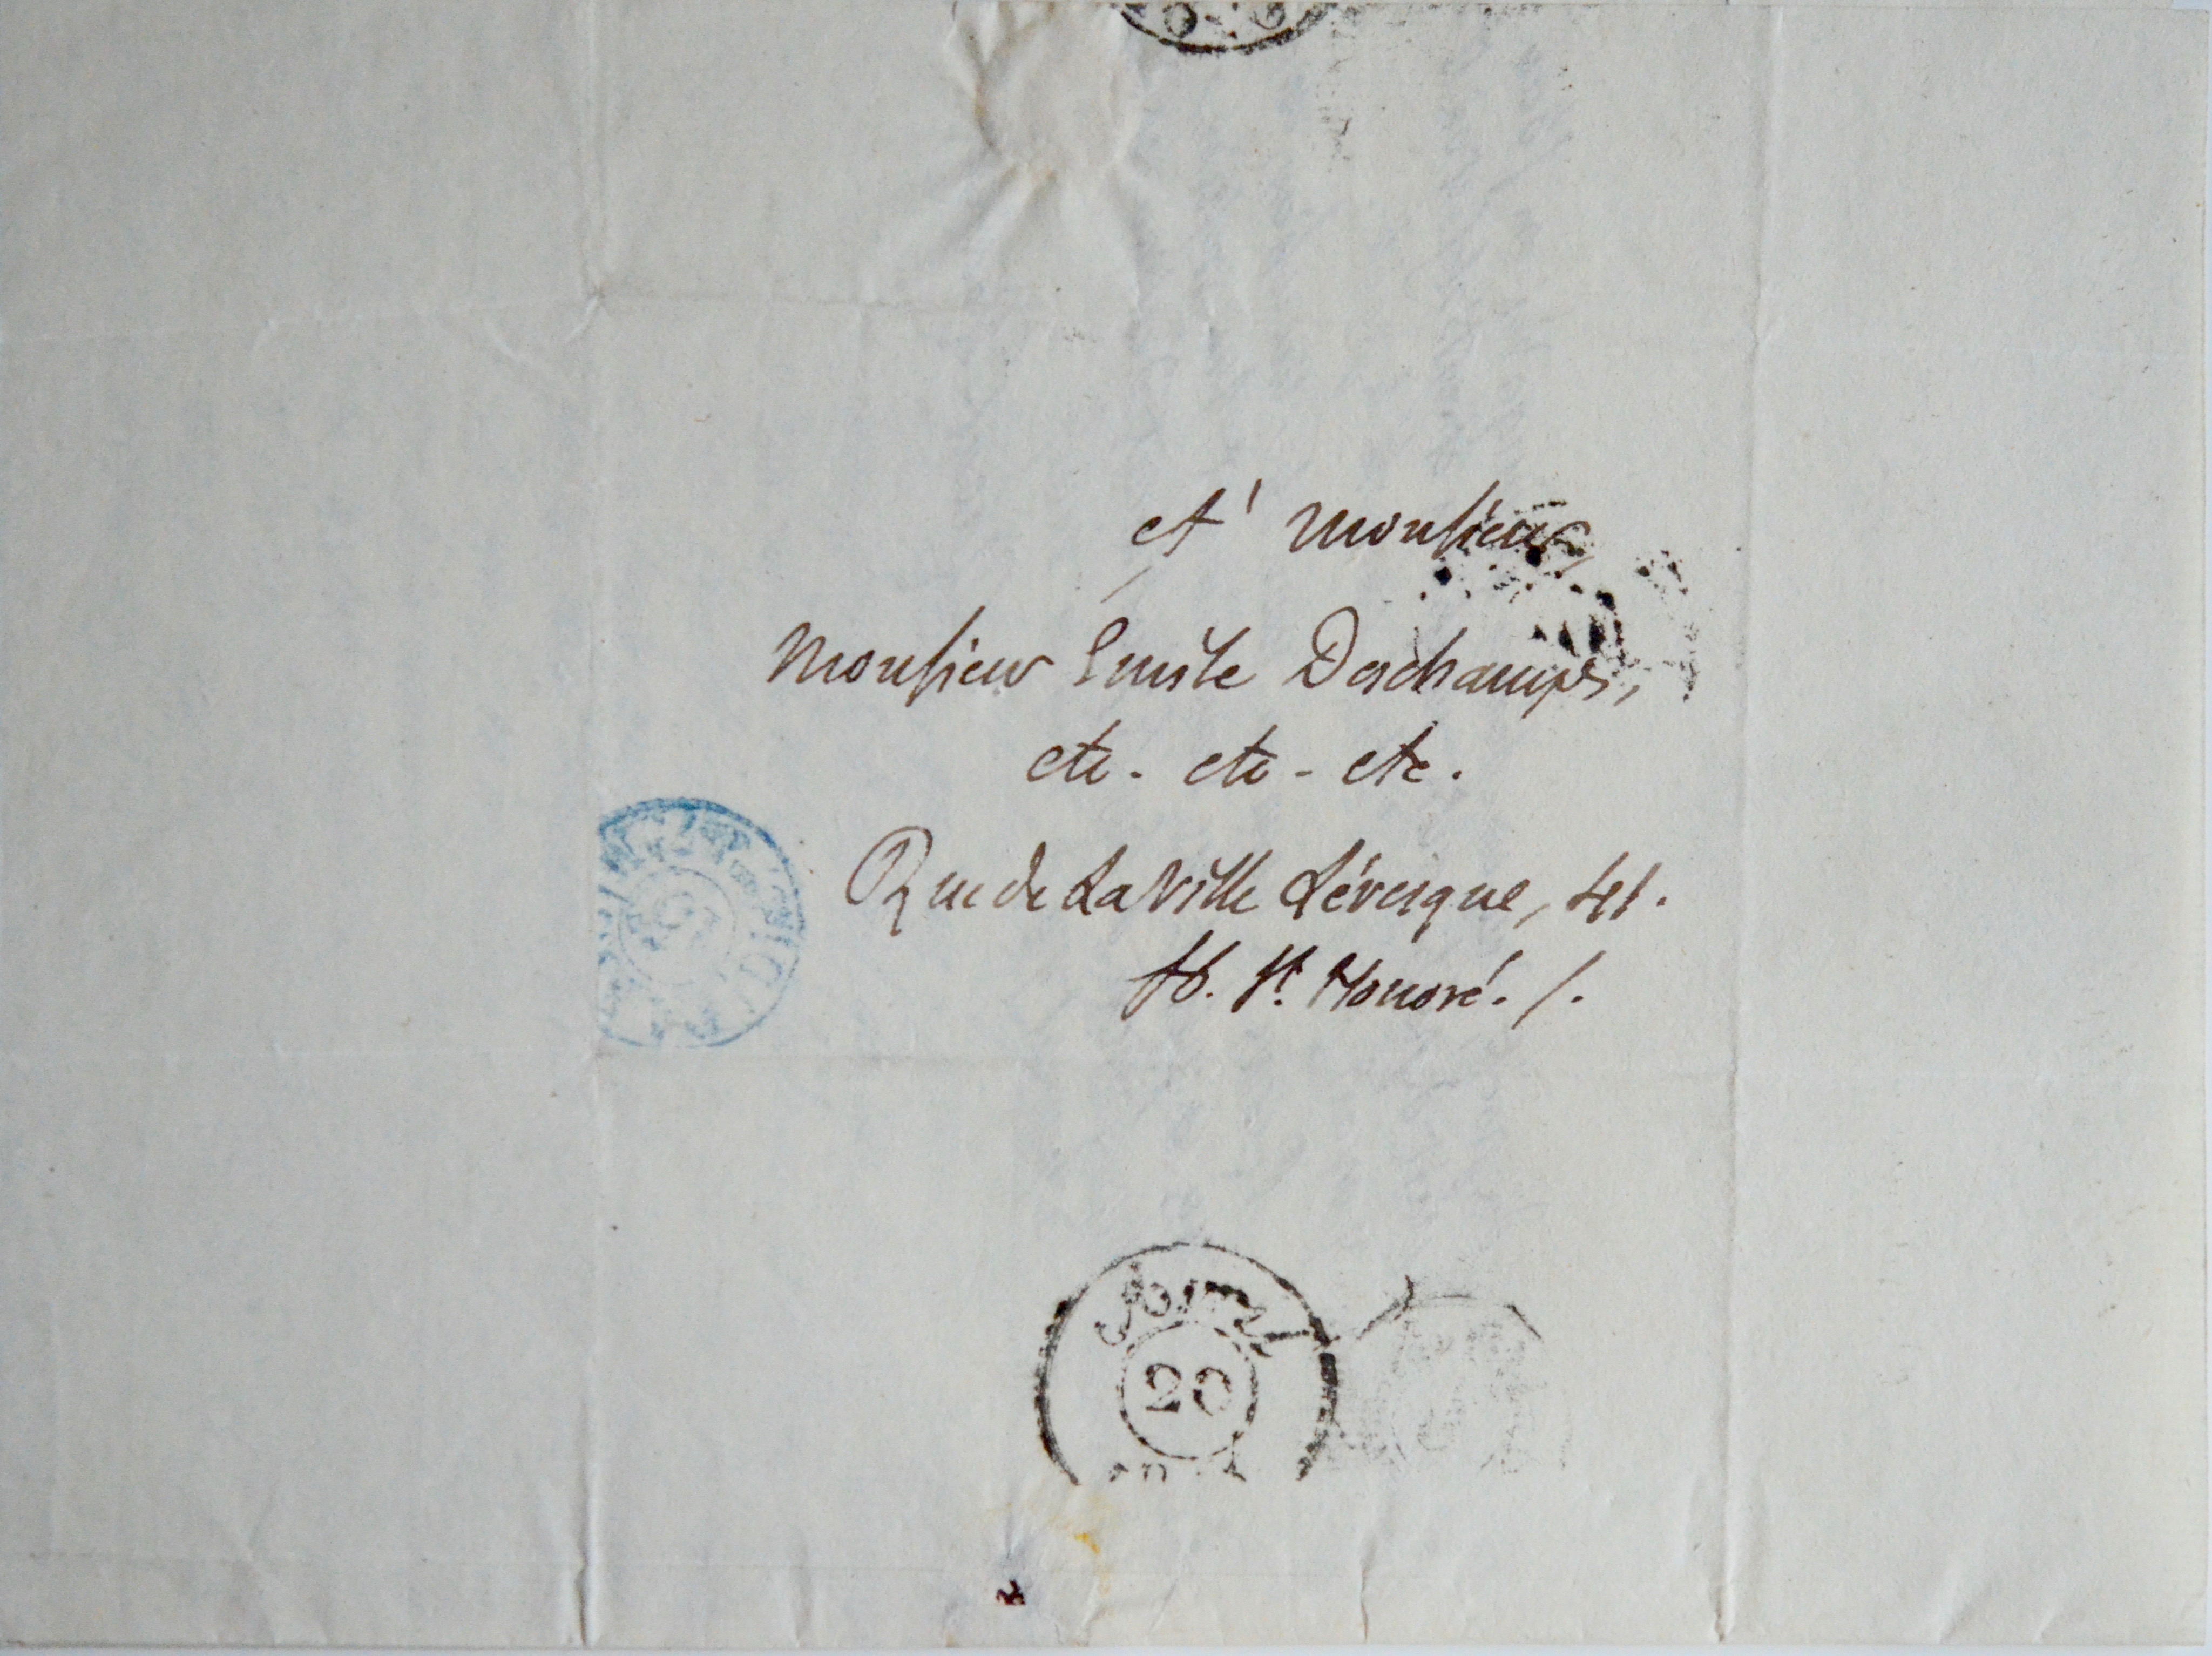 A' Monsieur,
Monsieur Emile Deschamps,
etc. etc. etc.
Rue de La Ville Lévesque, 41.
fb. St. Honoré. /.
20